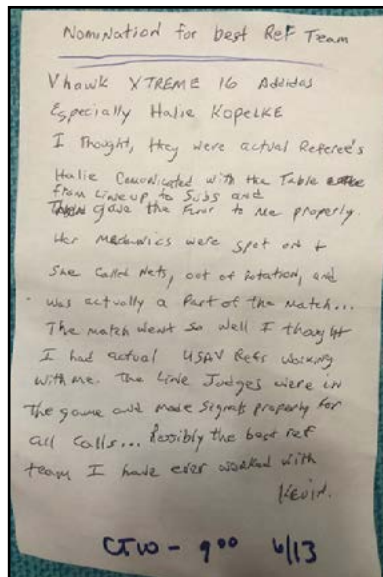 Nomination for best Ref Team
Vhawk XTREME 16 Addidas
Especially Halie KOPELKE
I Thought, they were actual Referee's
Halie Comunicated with the Table
from Lineup to Subs and
gave the Floor to me properly.
Her Mechanics were spot on +
She called Nets, out of rotation, and
was actually a Part of the Match...
The match went so well I thought
I had actual USAV Refs working
with me. The Line Judges were in
The game and made Signals properly for
all calls... Possibly the best ref
team I have ever worked with
Kevin.
CTW - 900 6/13